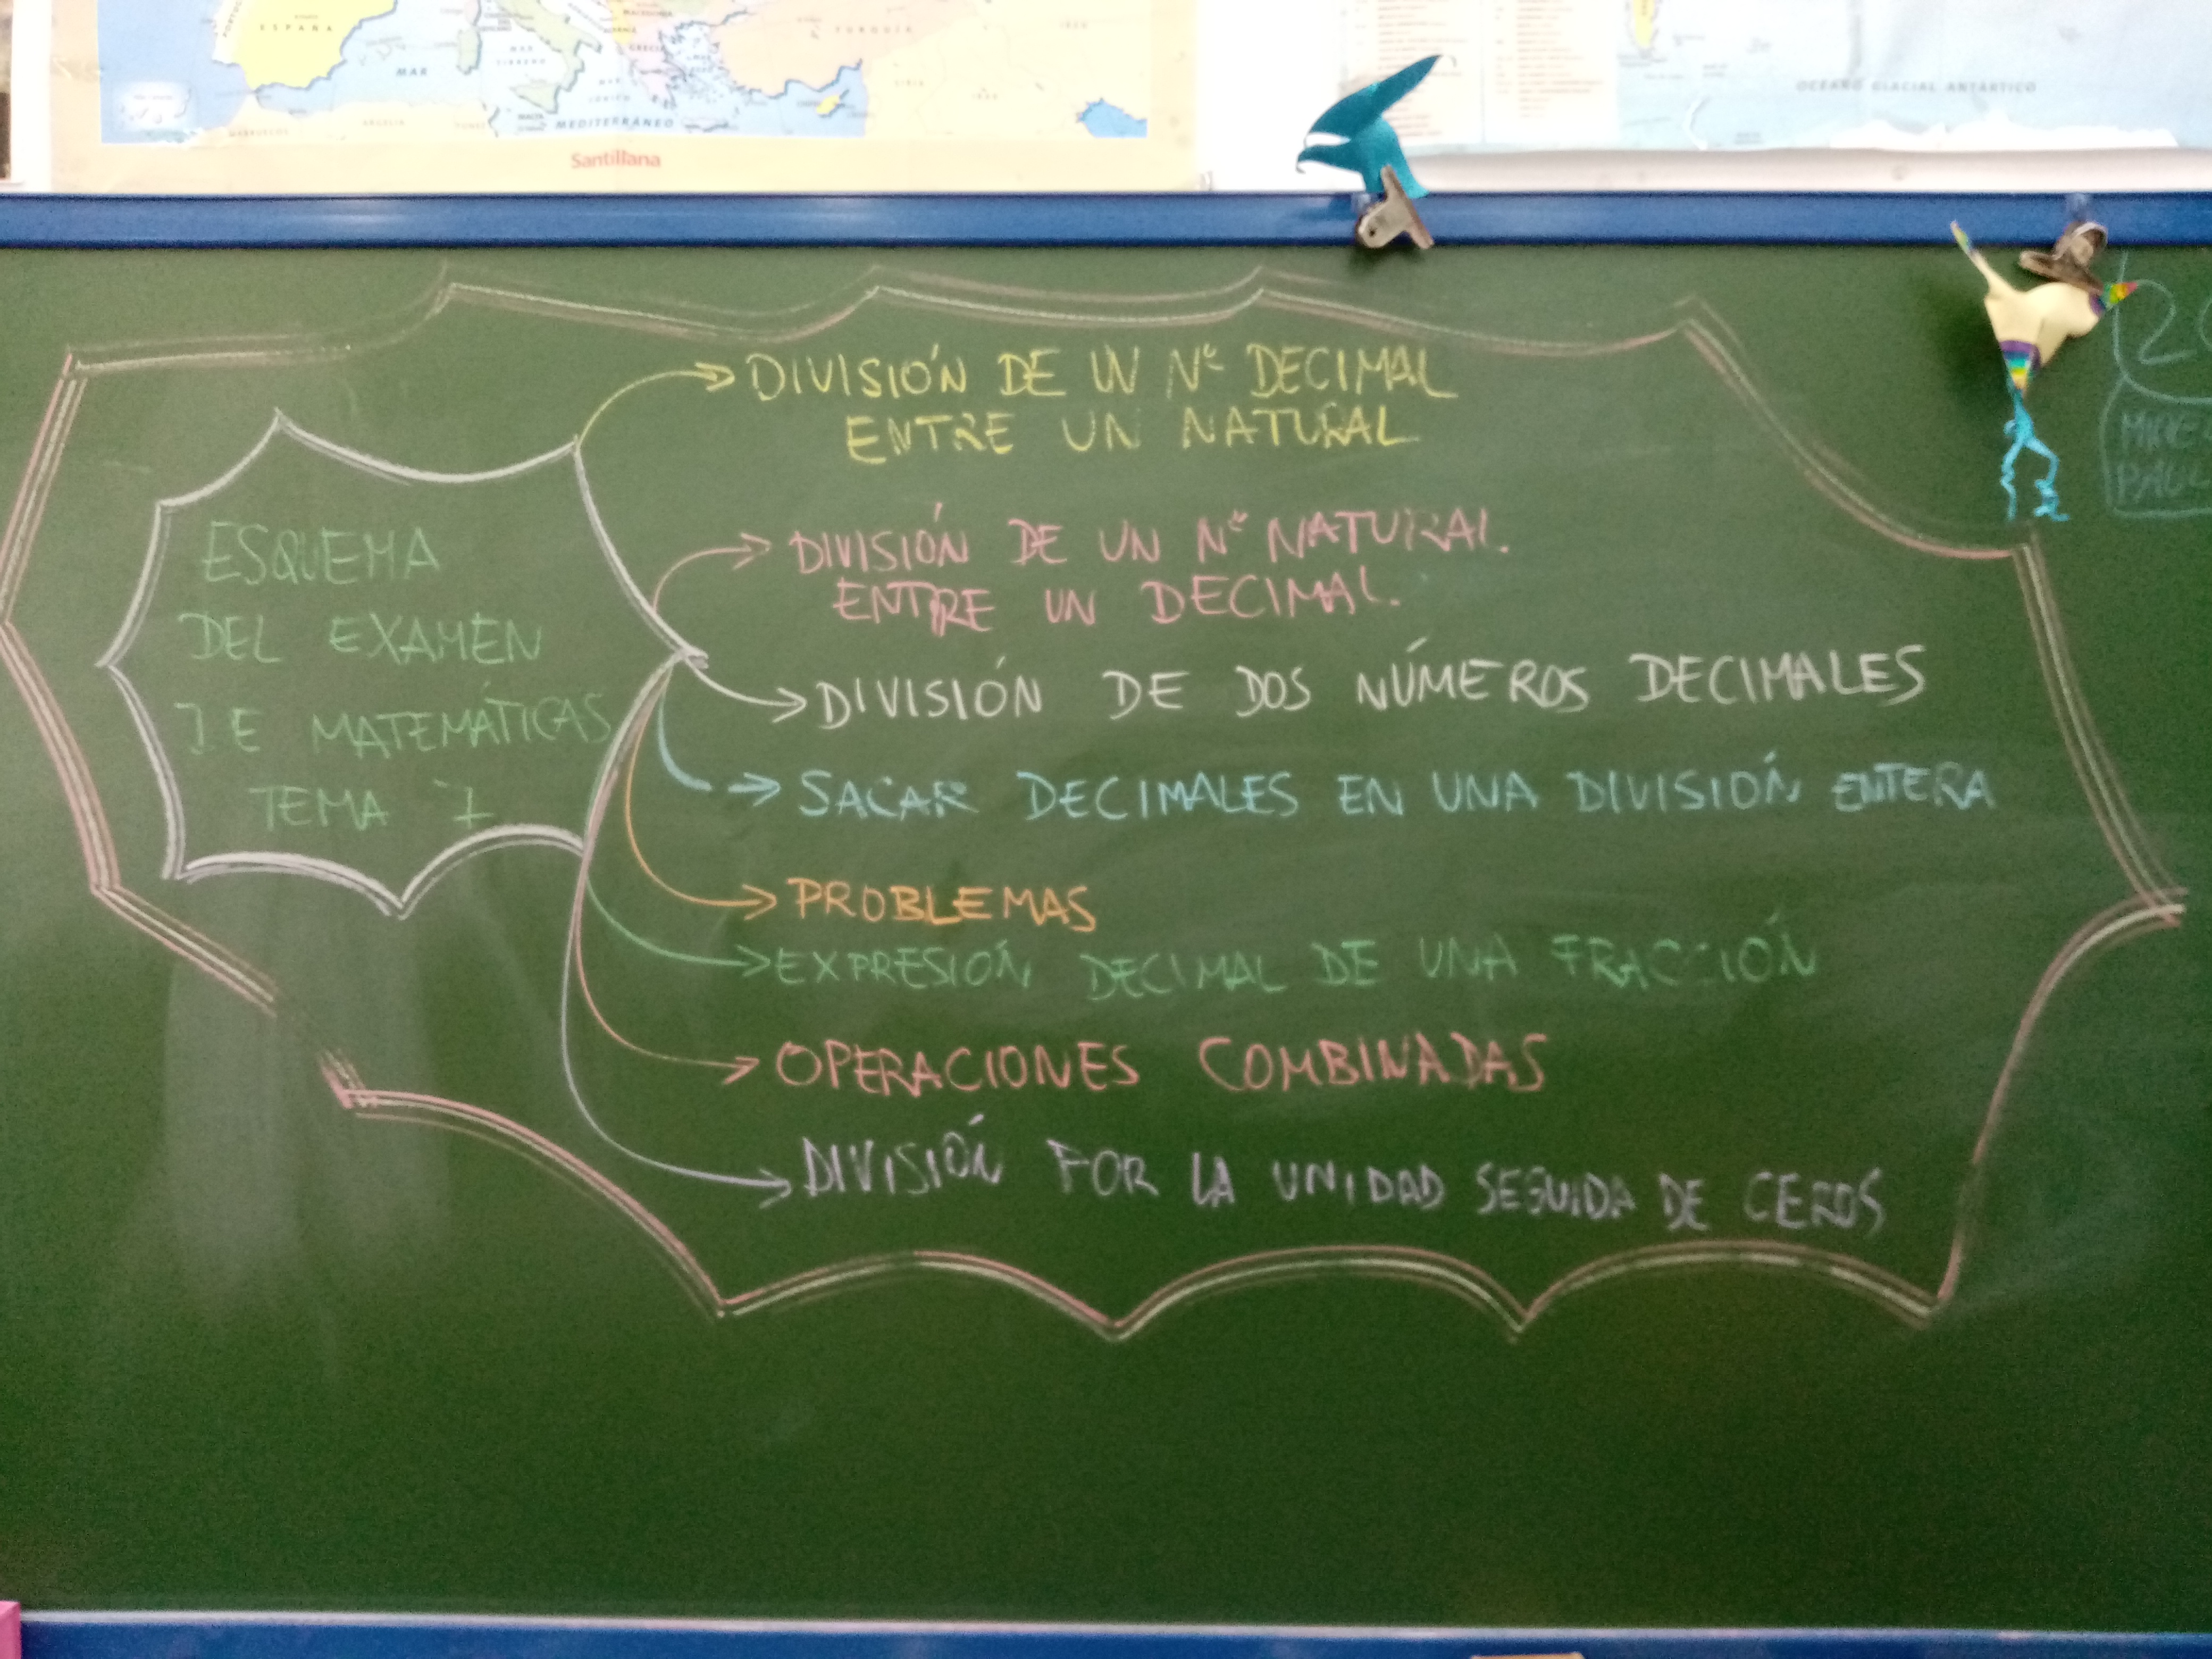 ESPAÑA
MAR
MEDITERRÁNEO
TURQUÍA
GRECIA
MALTA
ARGELIA
MARRUECOS
SIRIA
Santillana
OCÉANO GLACIAL ANTÁRTICO
ESQUEMA
DEL EXAMEN
DE MATEMÁTICAS
TEMA
DIVISIÓN DE UN Nº DECIMAL
ENTRE UN NATURAL
DIVISIÓN DE UN Nº NATURAL
ENTRE UN DECIMAL.
DIVISIÓN DE DOS NÚMEROS DECIMALES
SACAR DECIMALES EN UNA DIVISIÓN ENTERA
PROBLEMAS
EXPRESIÓN DECIMAL DE UNA FRACCIÓN
OPERACIONES COMBINADAS
DIVISIÓN POR LA UNIDAD SEGUIDA DE CEROS